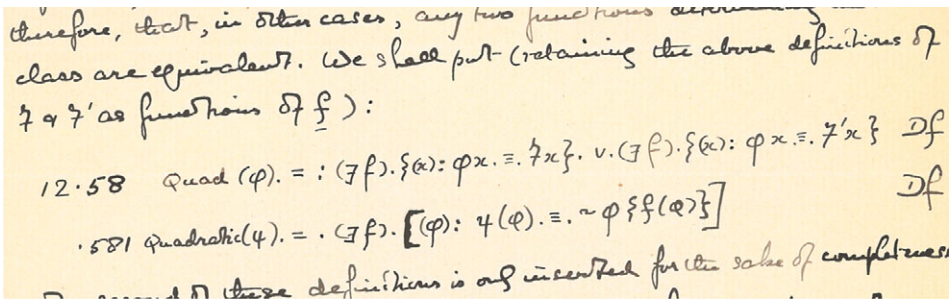 therefore, that, in other cases, any two functions determining
class are equivalent. We shall put (retaining the above definitions of
7 & 7' as functions of f ):
12.58 Quad (φ). = : (∃f).{(x): φx.≡.7x}. v.(∃f).{(x): φx.≡.7'x} Df
.581 Quadratic(ψ). = . (∃f). [(φ): ψ(φ).≡.~φ{f(φ)}] Df
second of these definitions is only inserted for the sake of completeness